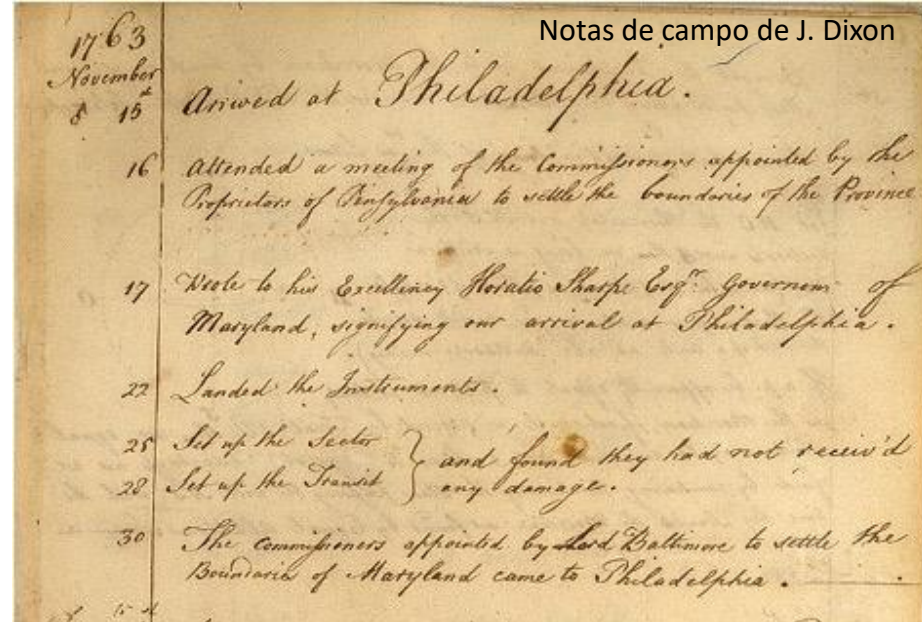 Notas de campo de J. Dixon
1763
November
8 15th Arrived at Philadelphia.
16 Attended a meeting of the Commissioners appointed by the
Proprietors of Pensylvania to settle the boundaries of the Province
17 Wrote to his Excellency Horatio Sharpe Esqr. Governour of
Maryland, signifying our arrival at Philadelphia.
22 Landed the Instruments.
25 Set up the Sector } and found they had not receiv'd
28 Set up the Transit } any damage.
30 The Commissioners appointed by Lord Baltimore to settle the
Boundaries of Maryland came to Philadelphia.